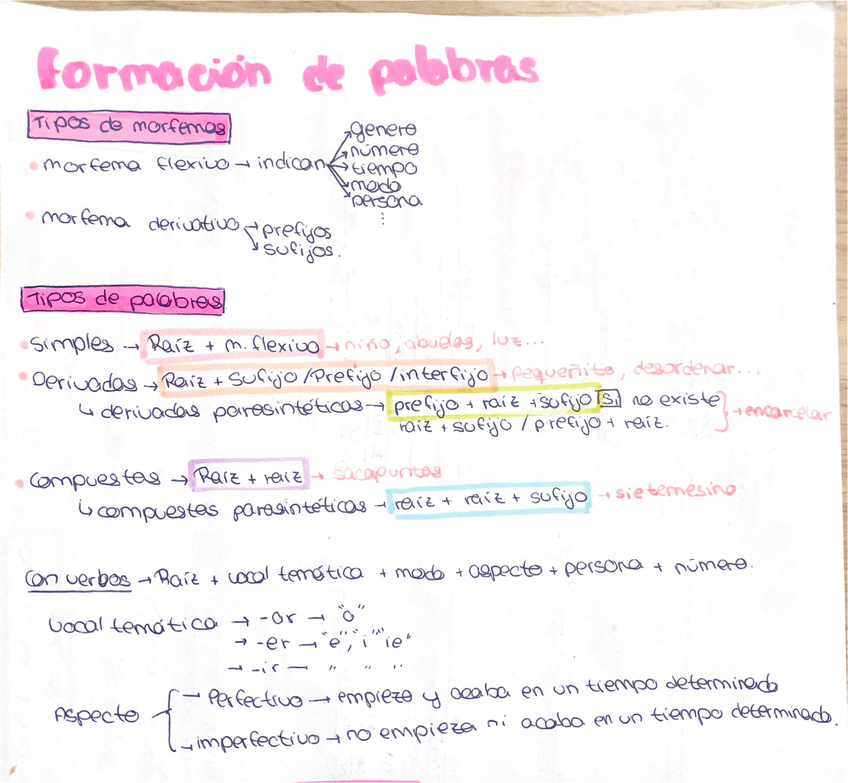 Formación de palabras
Tipos de morfemas
• morfema flexivo → indican → genero
→ número
→ tiempo
→ modo
→ persona
⋮
• morfema derivativo → prefijos
→ sufijos.
Tipos de palabras
• Simples → Raíz + m. flexivo → niño, abuelas, luz...
• Derivadas → Raíz + Sufijo / Prefijo / interfijo → pequeñito, desordenar...
↳ derivadas parasintéticas → prefijo + raíz + sufijo si no existe → encarcelar
raíz + sufijo / prefijo + raíz.
• Compuestas → Raíz + raíz → sacapuntas
↳ compuestas parasintéticas → raíz + raíz + sufijo → sietemesino
Con verbos → Raíz + vocal temática + modo + aspecto + persona + número.
Vocal temática → -ar → "a"
→ -er → "e", "i" "ie"
→ -ir — " " "
Aspecto → Perfectivo → empieza y acaba en un tiempo determinado
→ imperfectivo → no empieza ni acaba en un tiempo determinado.